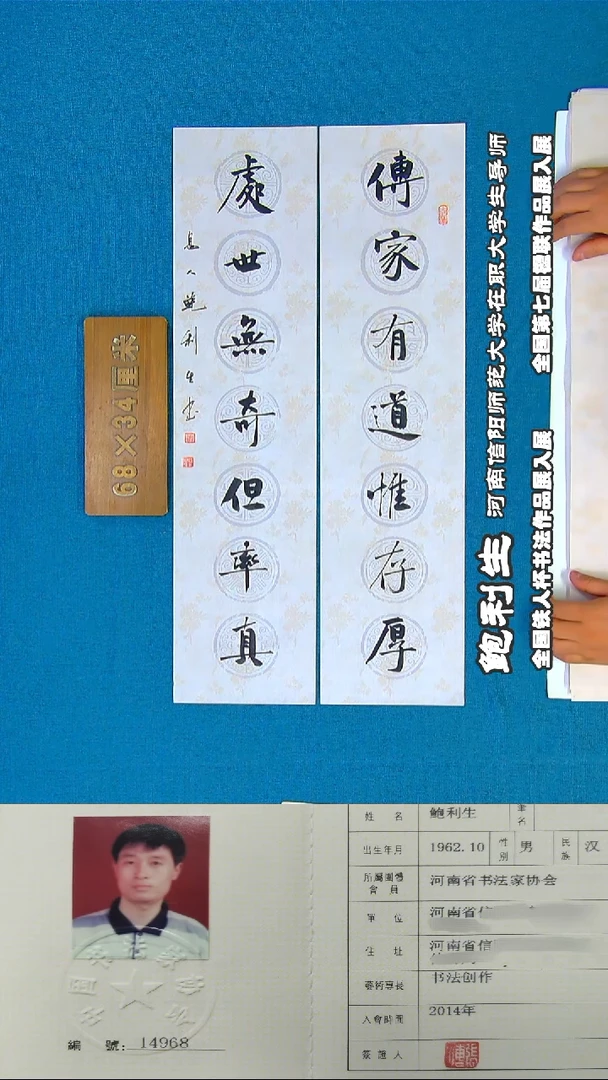 傳家有道惟存厚
處世無奇但率真
息人鮑利生书
68×34厘米
鲍利生 河南信阳师范大学在职大学生导师
全国铁人杯书法作品展入展 全国第七届楹联作品展入展
姓名 鲍利生 筆名
出生年月 1962.10 性別 男 民族 汉
所屬團體會員 河南省书法家协会
單位 河南省信
住址 河南省信
藝術專長 书法创作
入會時間 2014年
簽證人
編號: 14968